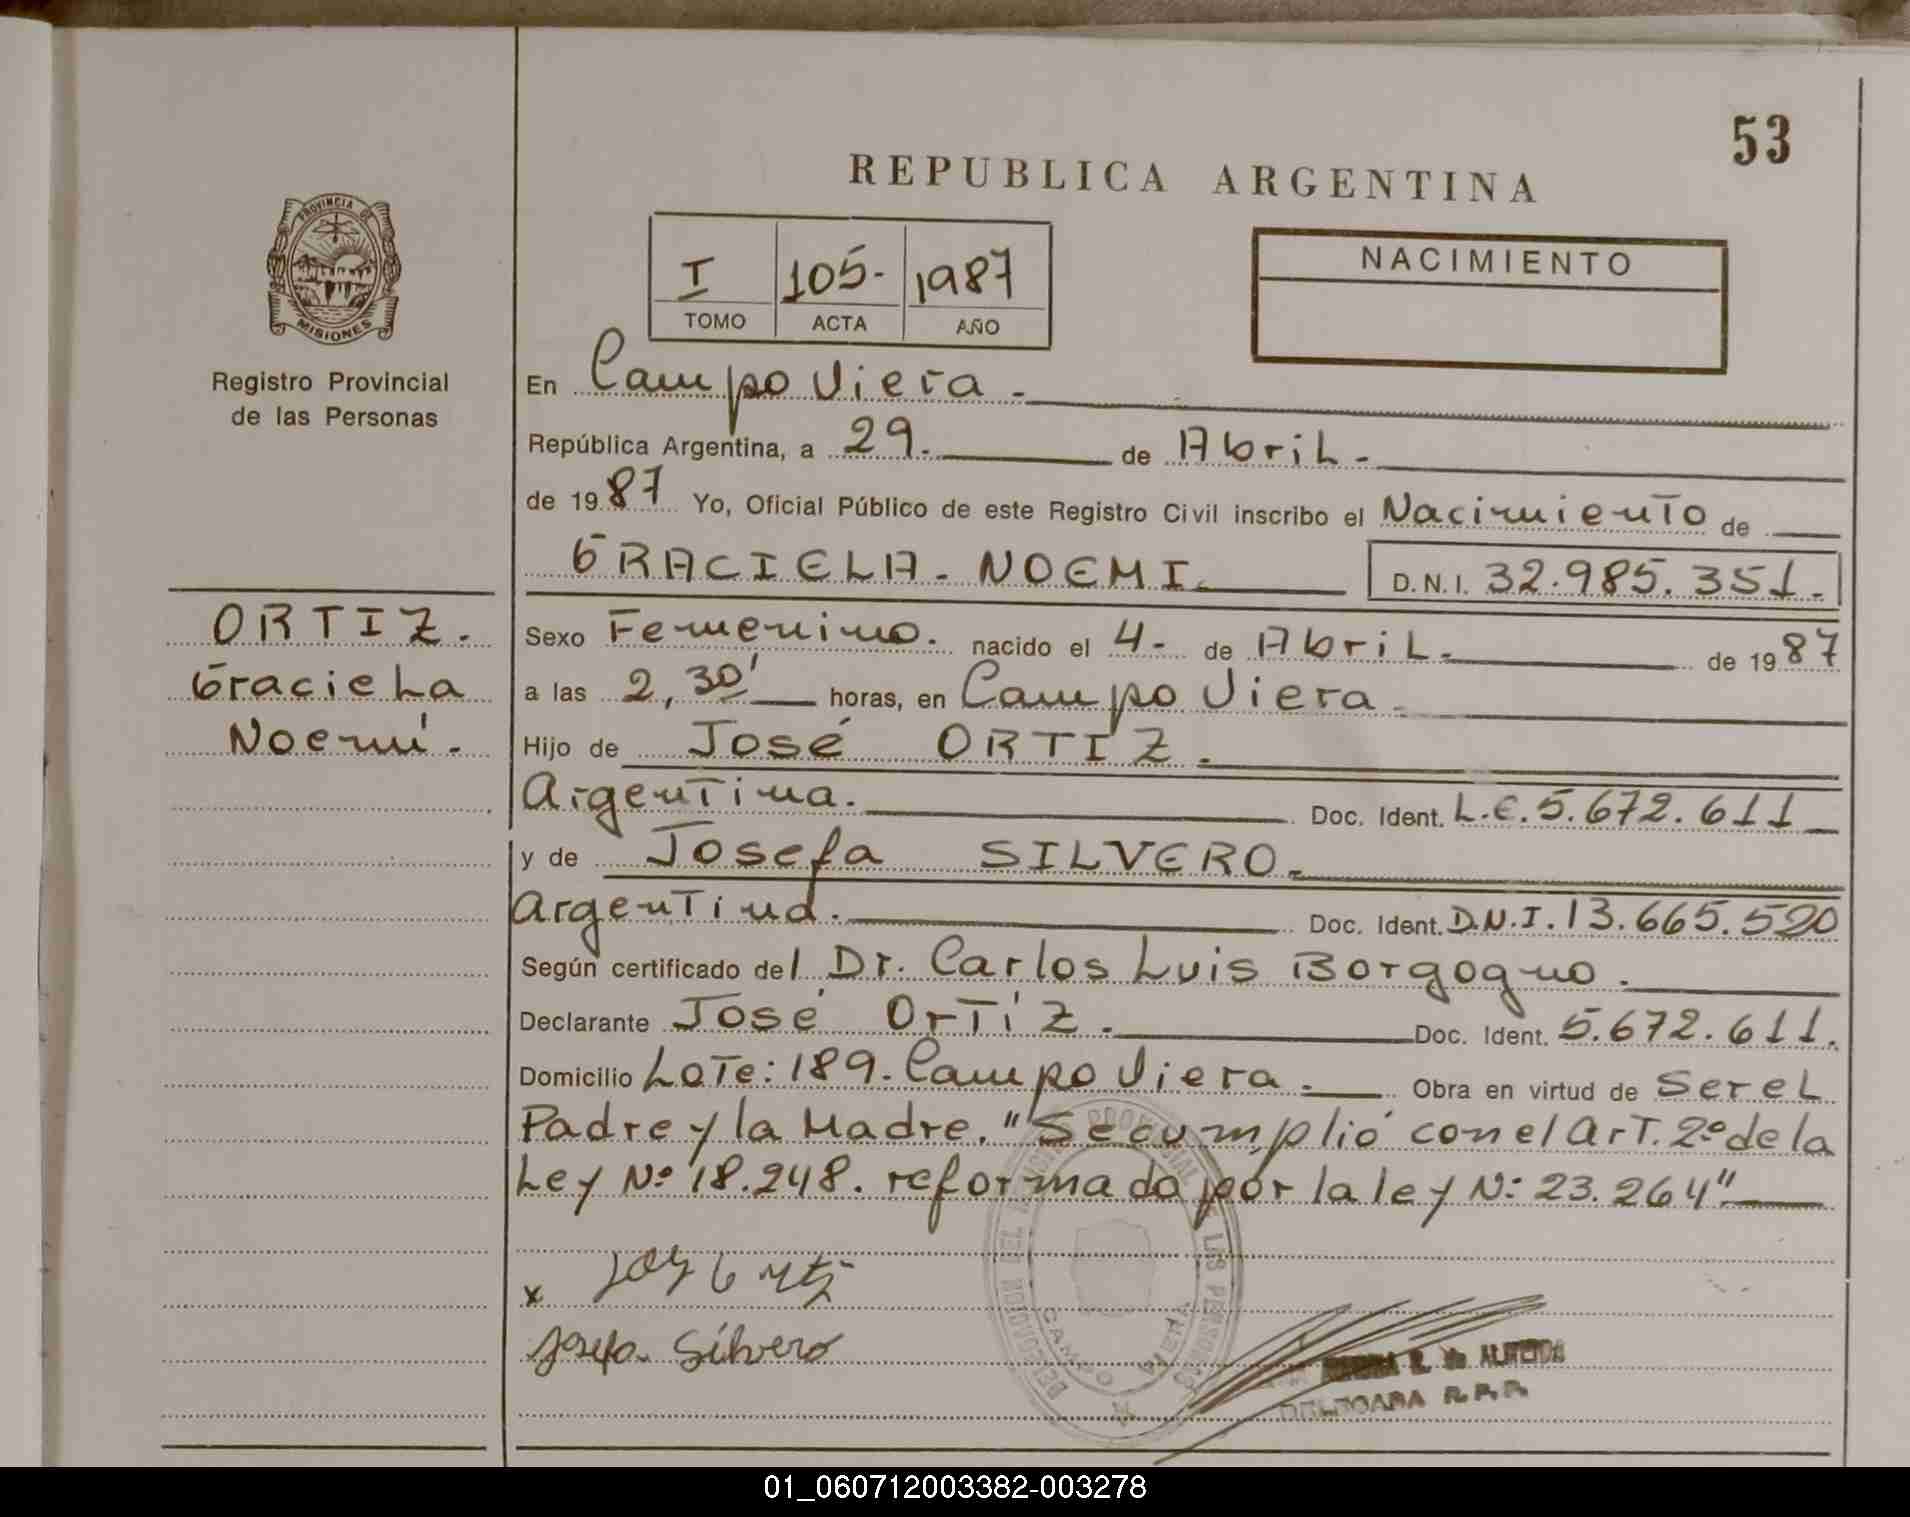 53
REPUBLICA ARGENTINA
PROVINCIA DE
MISIONES
Registro Provincial
de las Personas
I 105- 1987
TOMO ACTA AÑO
NACIMIENTO
En Campo Viera.
República Argentina, a 29. de Abril.
de 1987 Yo, Oficial Público de este Registro Civil inscribo el Nacimiento de
GRACIELA - NOEMI. D.N.I. 32.985.351.
ORTIZ.
Graciela
Noemí.
Sexo Femenino. nacido el 4- de Abril. de 1987
a las 2,30' horas, en Campo Viera.
Hijo de José ORTIZ.
Argentina. Doc. Ident. L.E. 5.672.611
y de Josefa SILVERO.
Argentina. Doc. Ident. D.N.I. 13.665.520
Según certificado del Dr. Carlos Luis Borgogno.
Declarante José Ortíz. Doc. Ident. 5.672.611.
Domicilio Lote: 189. Campo Viera. Obra en virtud de Ser el
Padre y la Madre. "Se cumplió con el Art. 2º de la
Ley Nº 18.248. reformado por la ley N: 23.264"
x
Josefa Silvero
CAMPO VIERA
R. de ALMEIDA
DELEGADA R.P.P.
01_060712003382-003278